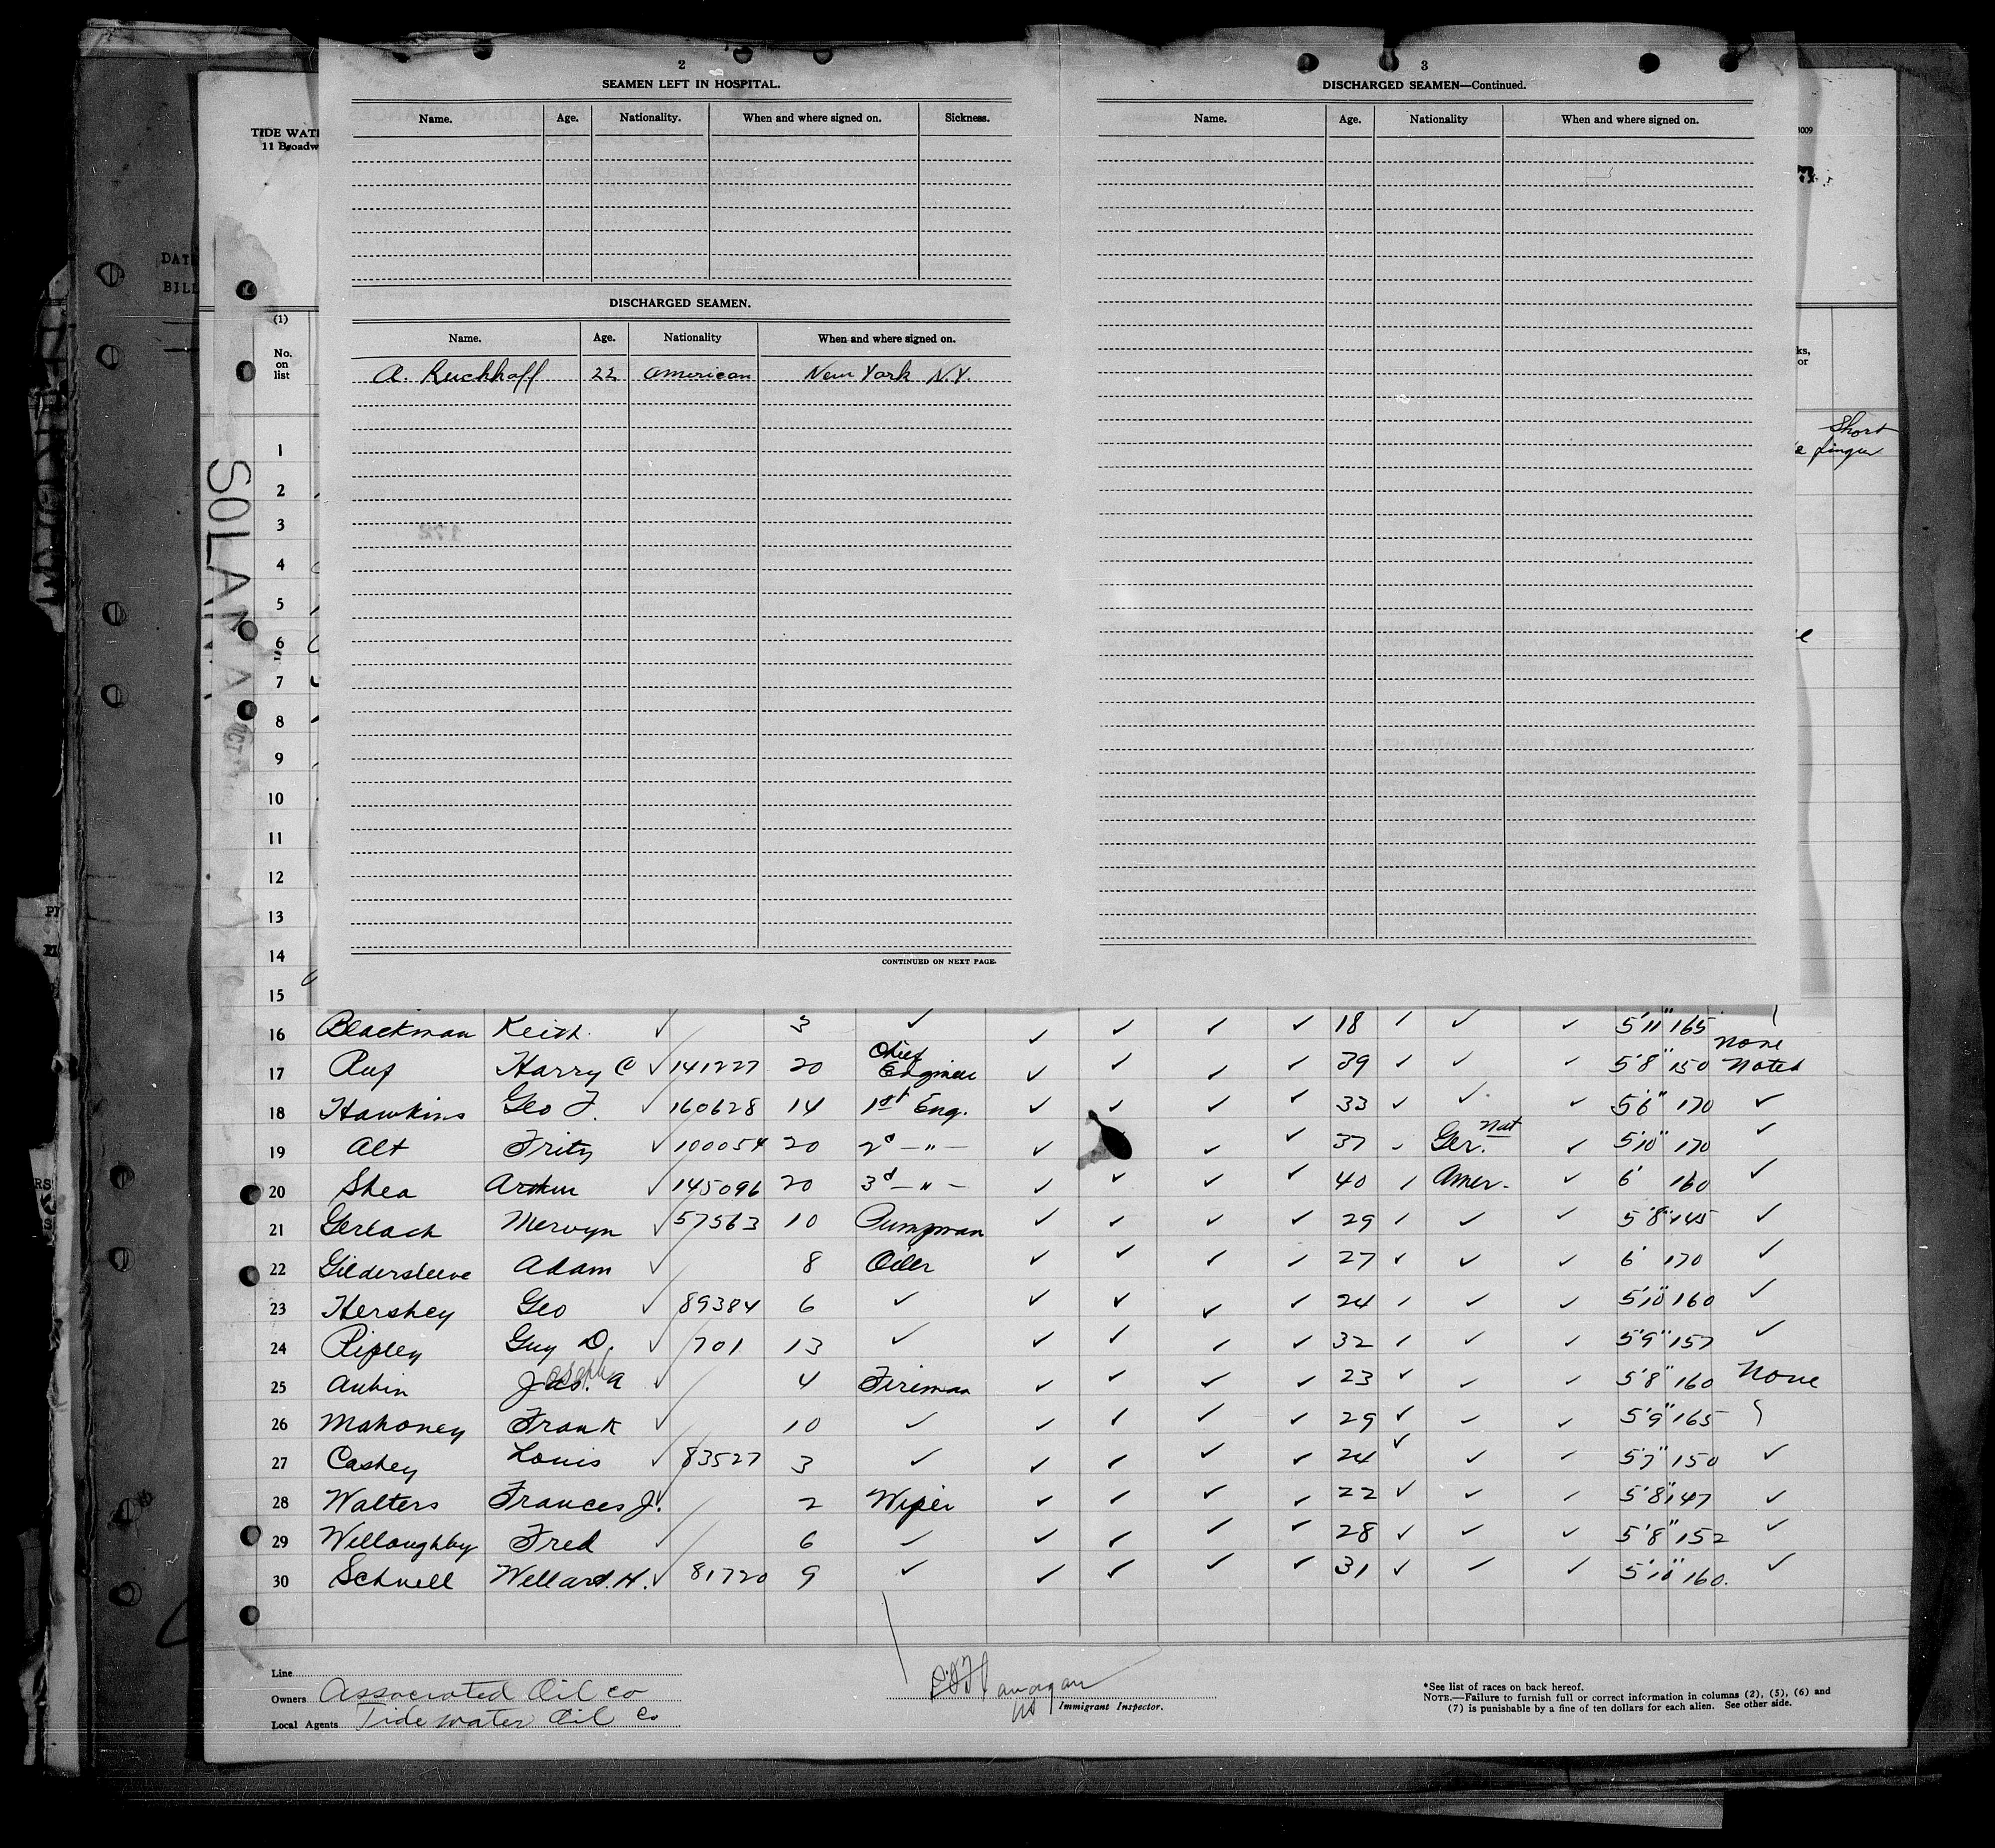 2
SEAMEN LEFT IN HOSPITAL.
Name. Age. Nationality. When and where signed on. Sickness.
DISCHARGED SEAMEN.
Name. Age. Nationality When and where signed on.
A. Ruchhoff 22 American New York N.Y.
CONTINUED ON NEXT PAGE.
3
DISCHARGED SEAMEN—Continued.
Name. Age. Nationality When and where signed on.
TIDE WAT
11 Broadw
DAT
BILL
(1)
No. on list
SOLANA
Short
finger
1
2
3
4
5
6
7
8
9
10
11
12
13
14
15
16 Blackman Keith. ✓ 3 ✓ ✓ ✓ ✓ ✓ 18 ✓ ✓ ✓ 5'11" 165
17 Ruf Harry C ✓ 141227 20 Chief Engineer ✓ ✓ ✓ ✓ 39 ✓ ✓ ✓ 5'8" 150 None Noted
18 Hawkins Geo F. ✓ 160628 14 1st Eng. ✓ ✓ ✓ ✓ 33 ✓ ✓ ✓ 5'6" 170 ✓
19 Alt Fritz ✓ 100054 20 2d — " — ✓ ✓ ✓ 37 ✓ Ger. Nat ✓ 5'10" 170 ✓
20 Shea Arthur ✓ 145096 20 3d — " — ✓ ✓ ✓ ✓ 40 ✓ Amer. ✓ 6' 160 ✓
21 Gerlach Mervyn ✓ 57563 10 Pumpman ✓ ✓ ✓ ✓ 29 ✓ ✓ ✓ 5'8" 145 ✓
22 Gildersleeve Adam ✓ 8 Oiler ✓ ✓ ✓ ✓ 27 ✓ ✓ ✓ 6' 170 ✓
23 Hershey Geo ✓ 89384 6 ✓ ✓ ✓ ✓ ✓ 24 ✓ ✓ ✓ 5'10" 160 ✓
24 Ripley Guy D. ✓ 701 13 ✓ ✓ ✓ ✓ ✓ 32 ✓ ✓ ✓ 5'9" 157 ✓
25 Aubin Joseph A ✓ 4 Fireman ✓ ✓ ✓ ✓ 23 ✓ ✓ ✓ 5'8" 160 None
26 Mahoney Frank ✓ 10 ✓ ✓ ✓ ✓ ✓ 29 ✓ ✓ ✓ 5'9" 165
27 Caskey Louis ✓ 83527 3 ✓ ✓ ✓ ✓ ✓ 24 ✓ ✓ ✓ 5'7" 150 ✓
28 Walters Frances J. ✓ 2 Wiper ✓ ✓ ✓ ✓ 22 ✓ ✓ ✓ 5'8" 147 ✓
29 Willoughby Fred ✓ 6 ✓ ✓ ✓ ✓ ✓ 28 ✓ ✓ ✓ 5'8" 152 ✓
30 Schnell Wellard. H. ✓ 81720 9 ✓ ✓ ✓ ✓ ✓ 31 ✓ ✓ ✓ 5'10" 160. ✓
Line
Owners Associated Oil Co
Local Agents Tidewater Oil Co
Immigrant Inspector.
*See list of races on back hereof.
NOTE.—Failure to furnish full or correct information in columns (2), (5), (6) and
(7) is punishable by a fine of ten dollars for each alien. See other side.